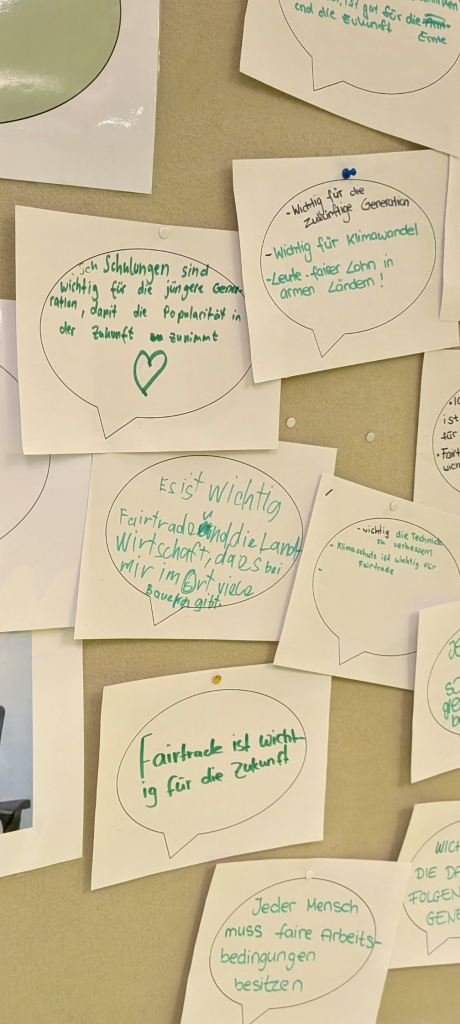 ist gut für die
und die Zukunft Ernte
- Wichtig für die
zukünftige Generation
- Wichtig für Klimawandel
- Leute fairer Lohn in
armen Ländern!
Schulungen sind
wichtig für die jüngere Gene-
ration, damit die Popularität in
der Zukunft zunimmt
Es ist wichtig
Fairtrade und die Land
Wirtschaft, dass bei
mir im Ort viele
Bauern gibt.
- wichtig die Technik
zu verbessern
- Klimaschutz ist wichtig für
Fairtrade
ist
für
Fairt
wich
Fairtrade ist wicht-
ig für die Zukunft
Jeder Mensch
muss faire Arbeits-
bedingungen
besitzen
WICH
DIE DA
FOLGEN
GENE